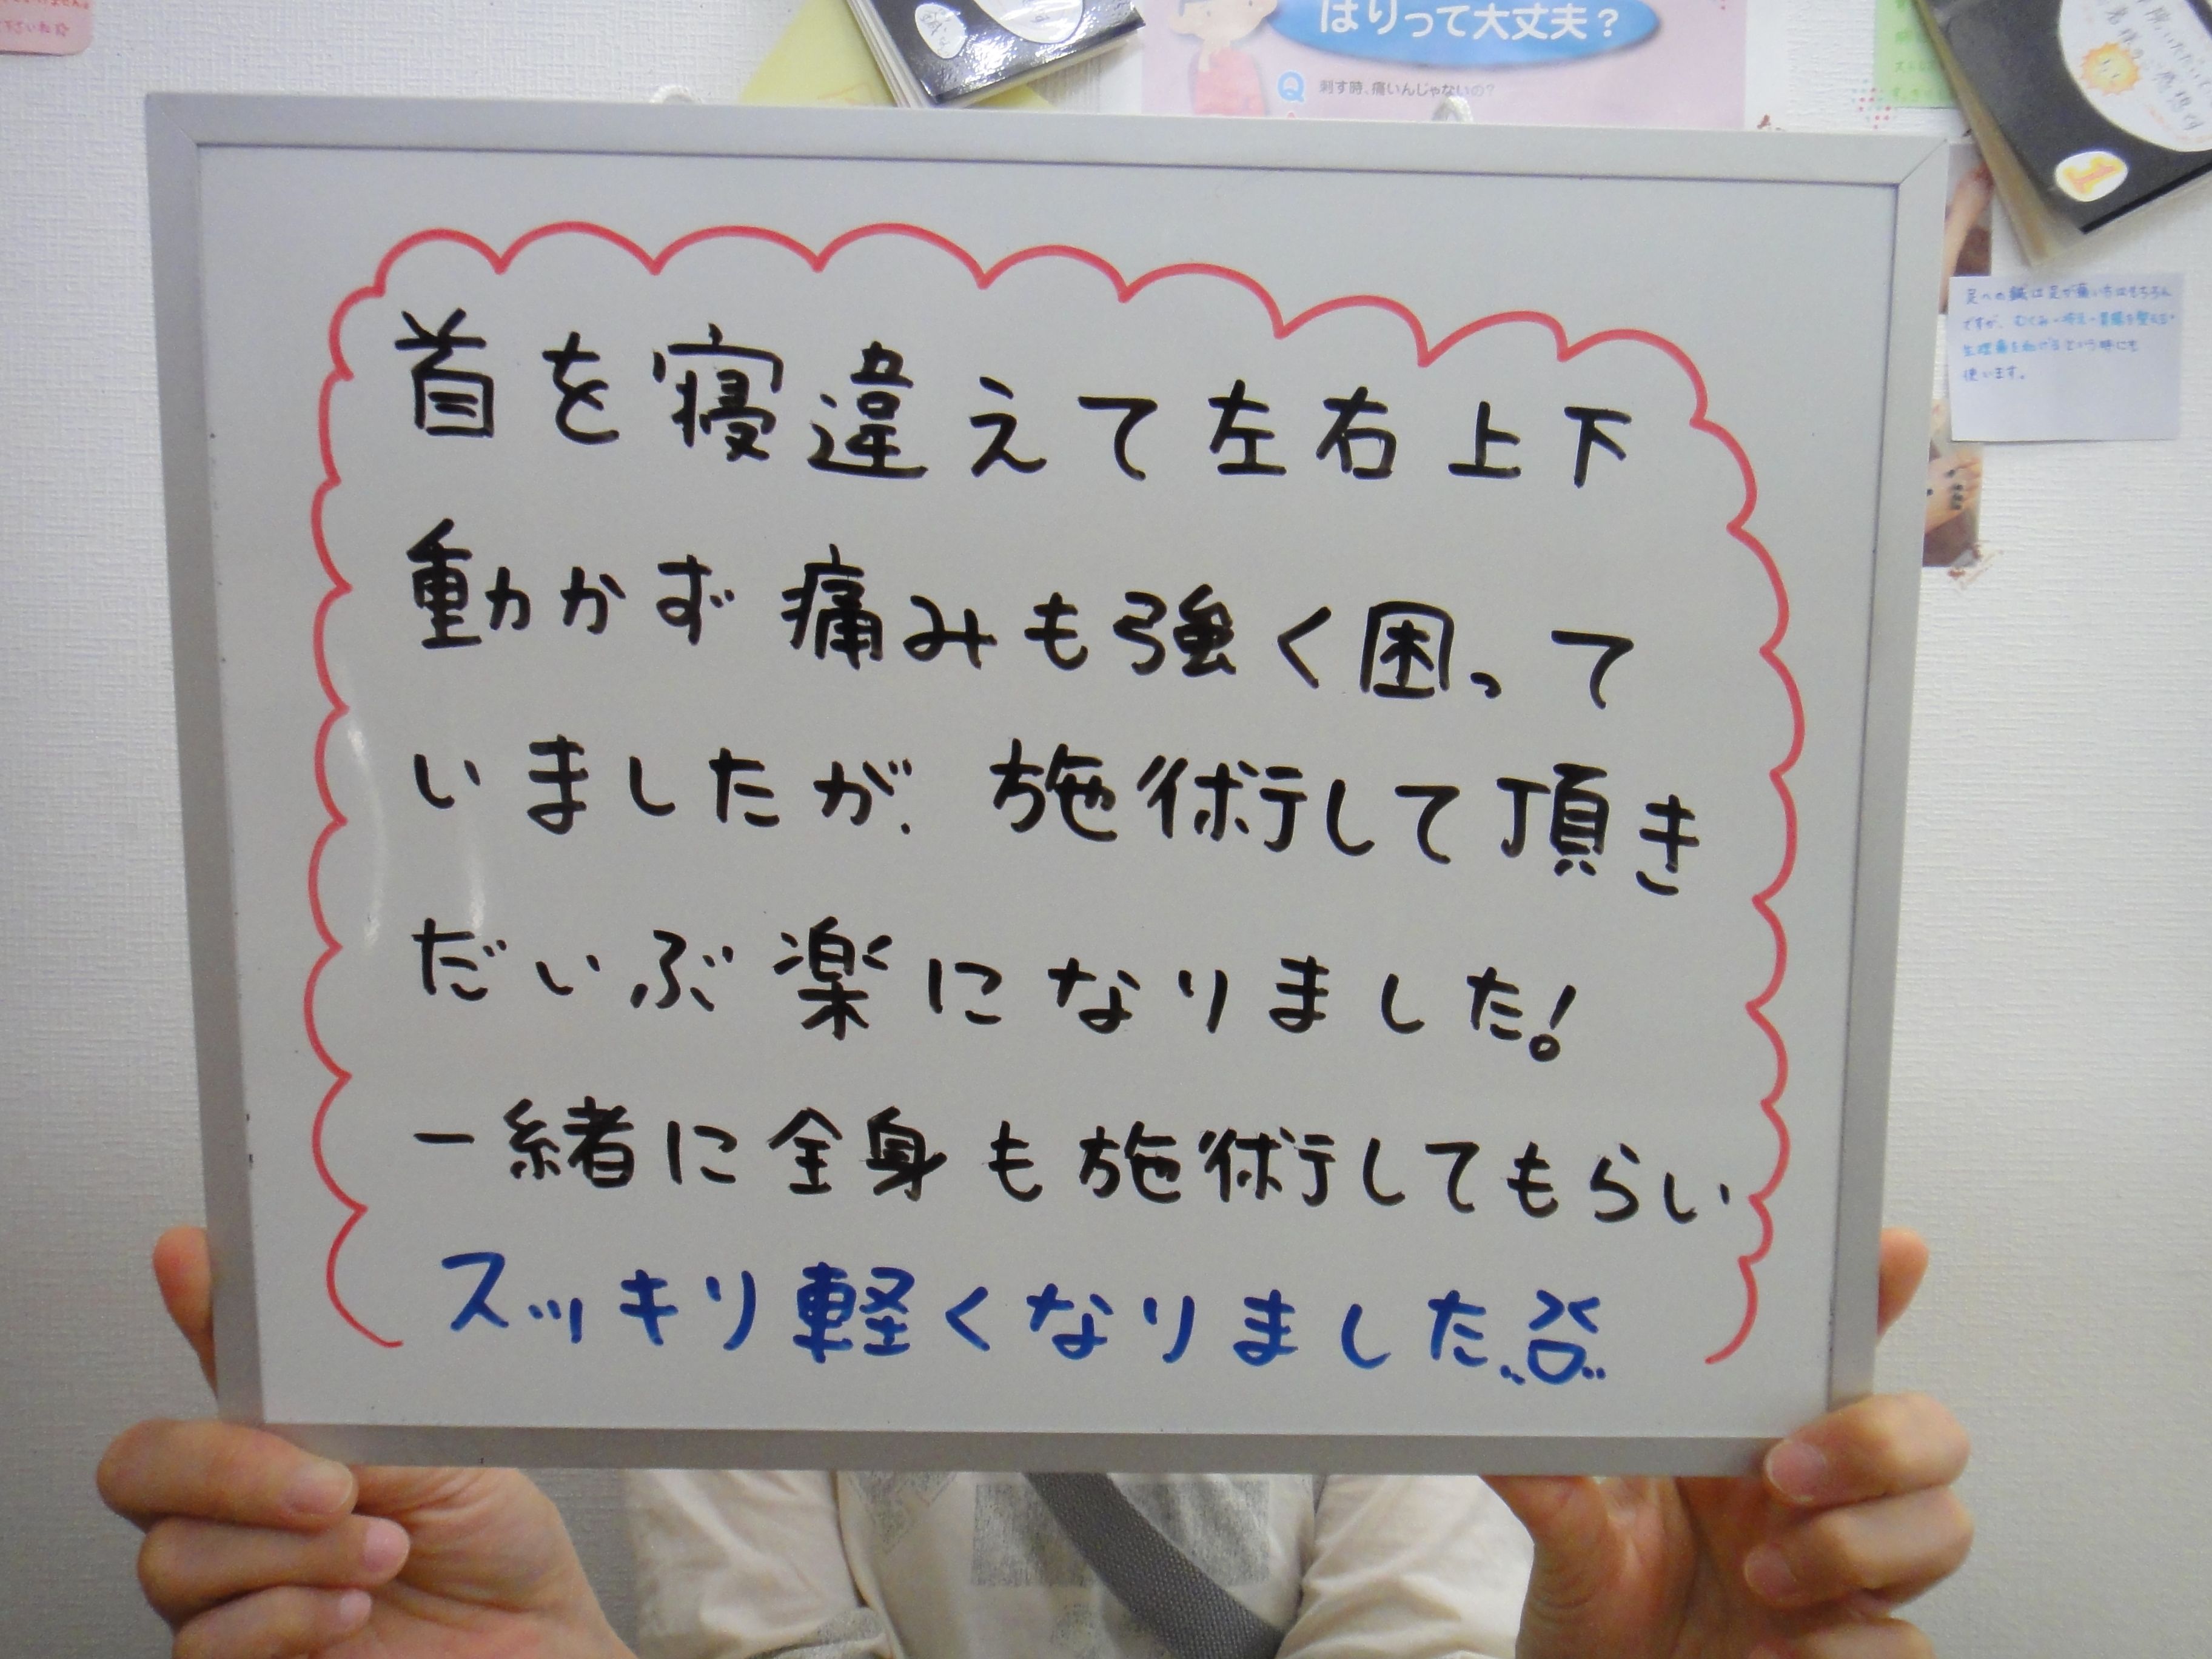 はりって大丈夫?
Q 刺す時、痛いんじゃないの?
首を寝違えて左右上下
動かず痛みも強く困って
いましたが、施術して頂き
だいぶ楽になりました!
一緒に全身も施術してもらい
スッキリ軽くなりました
足への鍼は足が痛い方はもちろん
ですが、むくみ・冷え・胃腸を整える・
生理痛を和げるという時にも
使います。
1